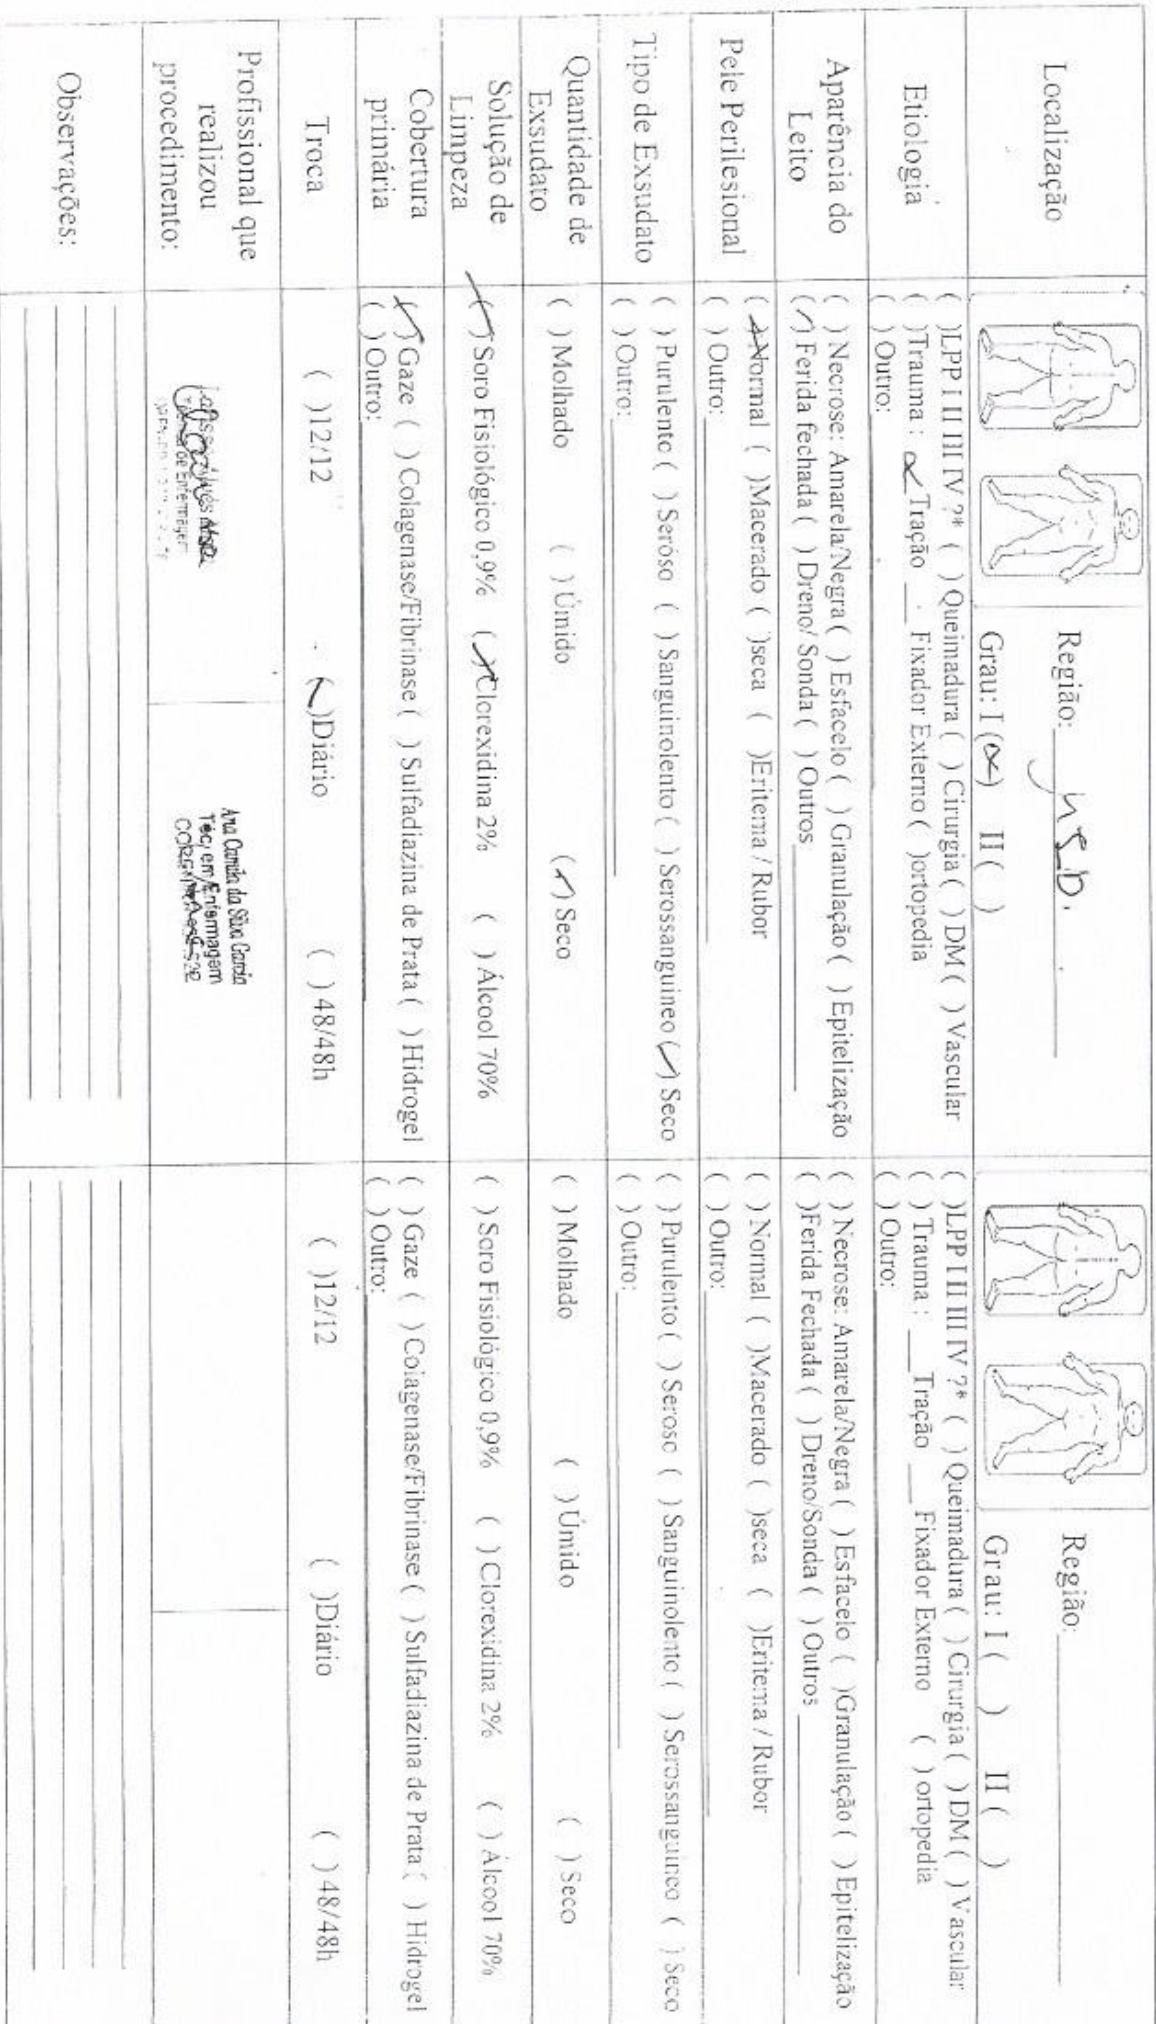 Localização
Região: MSD.
Grau: I (x) II ( )
Região:
Grau: I ( ) II ( )
Etiologia
( )LPP I II III IV ?* ( ) Queimadura ( ) Cirurgia ( ) DM ( ) Vascular
( )Trauma : x Tração __ Fixador Externo ( )ortopedia
( ) Outro:
( )LPP I II III IV ?* ( ) Queimadura ( ) Cirurgia ( ) DM ( ) Vascular
( ) Trauma : __ Tração __ Fixador Externo ( ) ortopedia
( ) Outro:
Aparência do
Leito
( ) Necrose: Amarela/Negra ( ) Esfacelo ( ) Granulação ( ) Epitelização
(✓) Ferida fechada ( ) Dreno/ Sonda ( ) Outros
( ) Necrose: Amarela/Negra ( ) Esfacelo ( )Granulação ( ) Epitelização
( )Ferida Fechada ( ) Dreno/Sonda ( ) Outros
Pele Perilesional
(x)Normal ( )Macerado ( )seca ( )Eritema / Rubor
( ) Outro:
( ) Normal ( )Macerado ( )seca ( )Eritema / Rubor
( ) Outro:
Tipo de Exsudato
( ) Purulento ( ) Seróso ( ) Sanguinolento ( ) Serossanguineo (✓) Seco
( ) Outro:
( ) Purulento ( ) Seroso ( ) Sanguinolento ( ) Serossanguineo ( ) Seco
( ) Outro:
Quantidade de
Exsudato
( ) Molhado ( ) Úmido (✓) Seco
( ) Molhado ( ) Úmido ( ) Seco
Solução de
Limpeza
(✓) Soro Fisiológico 0,9% (x)Clorexidina 2% ( ) Álcool 70%
( ) Soro Fisiológico 0,9% ( ) Clorexidina 2% ( ) Álcool 70%
Cobertura
primária
(✓) Gaze ( ) Colagenase/Fibrinase ( ) Sulfadiazina de Prata ( ) Hidrogel
( ) Outro:
( ) Gaze ( ) Colagenase/Fibrinase ( ) Sulfadiazina de Prata ( ) Hidrogel
( ) Outro:
Troca
( )12/12 (✓)Diário ( ) 48/48h
( )12/12 ( )Diário ( ) 48/48h
Profissional que
realizou
procedimento:
de Enfermagem
Ana Camila da Silva Garcia
Téc. em Enfermagem
Observações: